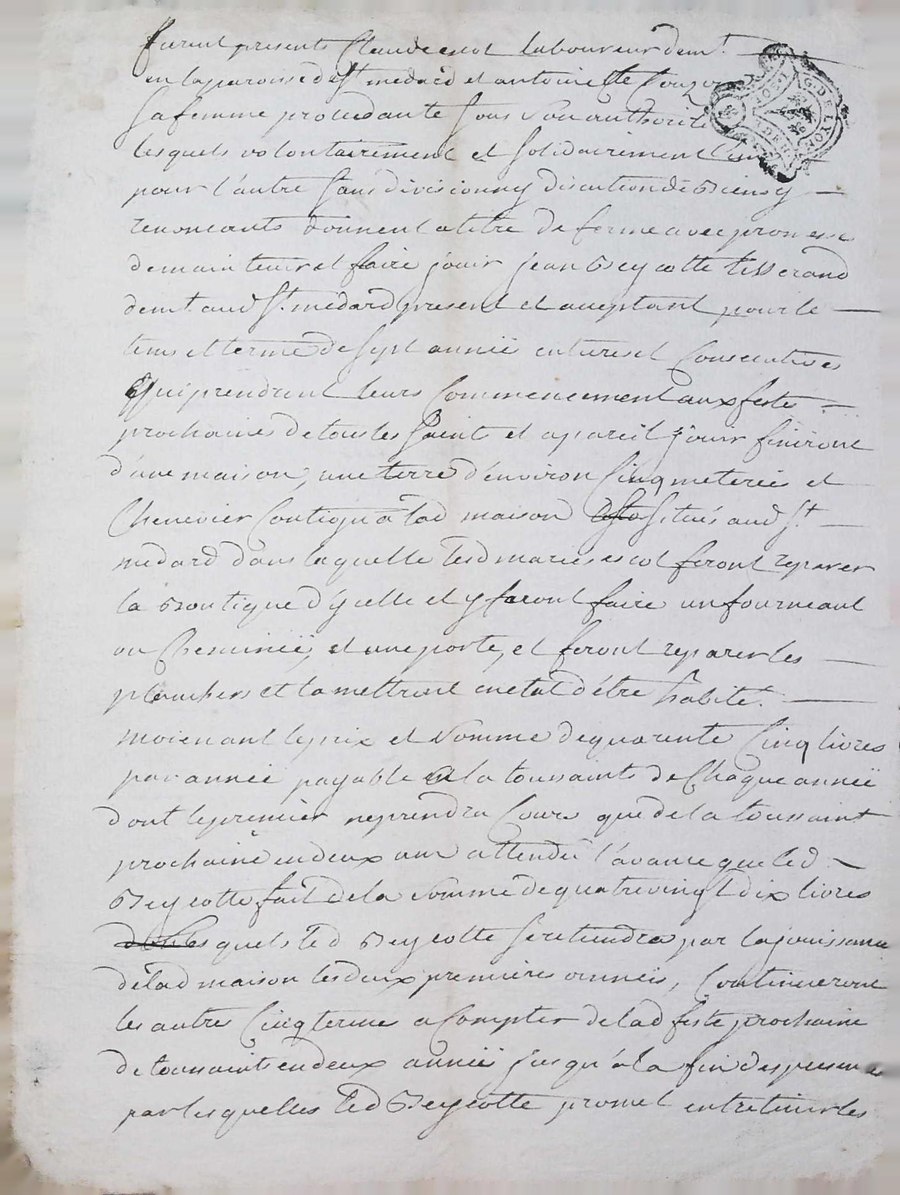 furent presents Claude escot laboureur demt
en la paroisse de St medard et antoinette
sa femme procedante sous son authorité
lesquels volontairement et solidairement l'un
pour l'autre sans division ny discution de biens y
renoncants donnent a titre de ferme avec promesse
de maintenir et faire jouir jean Beycotte tisserand
demt aud St medard present et acceptant pour le
tems et terme de sept année entieres et consecutives
qui prendront leurs commencement aux feste
prochaines de tous les saints et a pareil jour finiront
d'une maison, une terre d'environ cinq meterée et
Chenevier Contigu a lad maison situés aud St
medard dans laquelle lesd mariés escot feront reparer
la Boutique d'ycelle et y feront faire un fourneaut
ou Cheminéé, et une porte, et feront reparer les
planchers et la mettront en etat d'être habité.
moienant le prix et somme de quarente cinq livres
par année payable a la toussaints de chaque année
dont le premier ne prendra cours que de la toussaint
prochaine en deux ans attendu l'avance que led
Beycotte fait de la somme de quatre vingt dix livres
lesquels led Beycotte se retiendra par la jouissance
de lad maison les deux premieres années, Continueront
les autre cinq terme a compter de lad feste prochaine
de toussaints en deux année jusqu'à la fin des presentes
par lesquelles led Beycotte promet entretenir les
G. DE LYON